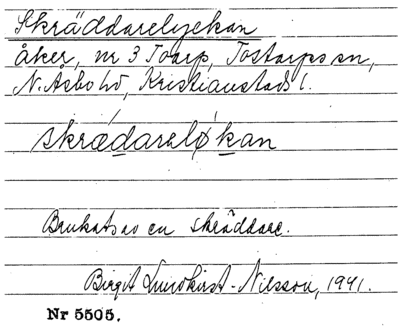 Skräddarelyckan
åker, nr 3 Toarp, Tostarps sn,
N. Åsbo hd, Kristianstads l.
skrædareløkan
Brukats av en skräddare.
Birgit Lundkvist-Nilsson, 1941.
Nr 5505.